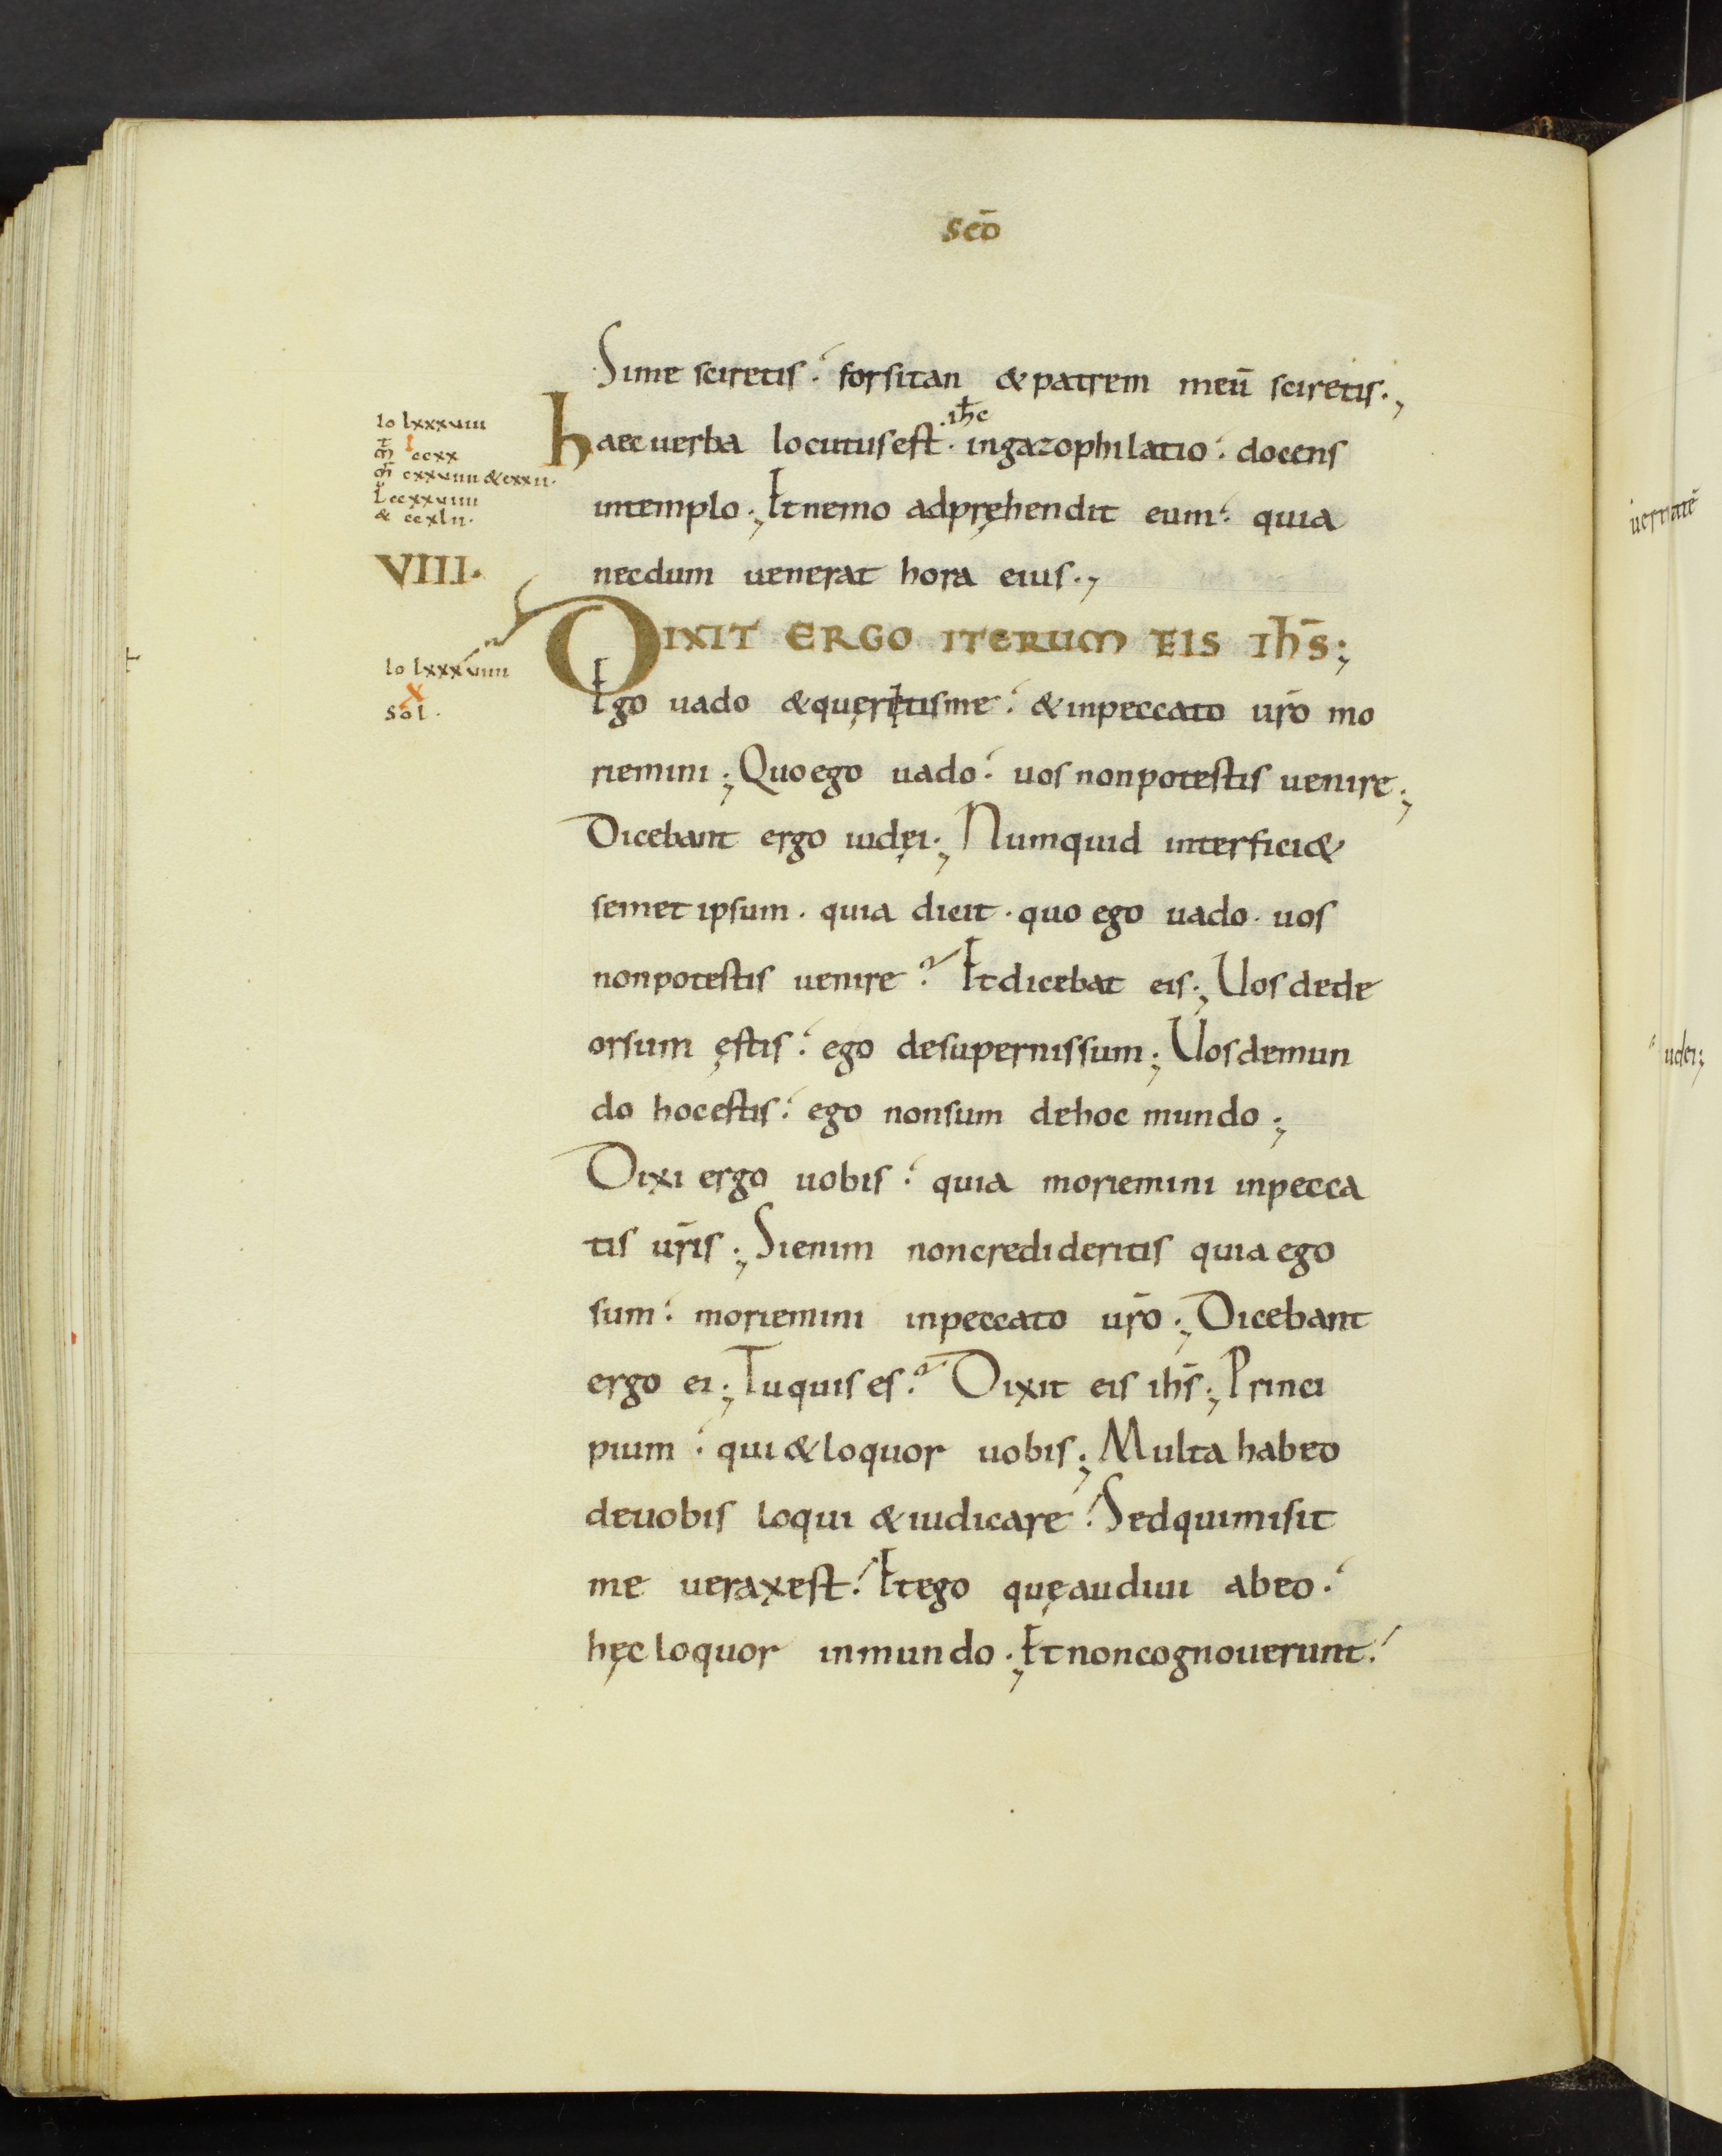 scō
Si me sciretis. forsitan & patrem meū sciretis.,
Io lxxxviii
haec uerba locutus est. ihc in gazophilatio. docens
I
m̄ ccxx
m̄ cxxviiii & cxxii.
L ccxxviiii
& ccxlii.
in templo; Et nemo adpręhendit eum. quia
VIII.
necdum uenerat hora eius.,
DIXIT ERGO ITERUM EIS Ih̄S;
Io lxxxviiii
X
Sol.
Ego uado & quęretis me. & in peccato ur̄o mo
riemini; Quo ego uado. uos non potestis uenire;
Dicebant ergo iudęi; Numquid interfici&
semet ipsum. quia dicit. quo ego uado. uos
non potestis uenire? Et dicebat eis; Uos de de
orsum ęstis. ego de supernis sum; Uos de mun
do hoc estis. ego non sum de hoc mundo;
Dixi ergo uobis. quia moriemini in pecca
tis ur̄is; Si enim non credideritis quia ego
sum. moriemini in peccato ur̄o; Dicebant
ergo ei; Tu quis es? Dixit eis ih̄s; Princi
pium. qui & loquor uobis; Multa habeo
de uobis loqui & iudicare. Sed qui misit
me uerax est. Et ego quę audiui ab eo.
hęc loquor in mundo; Et non cognouerunt.